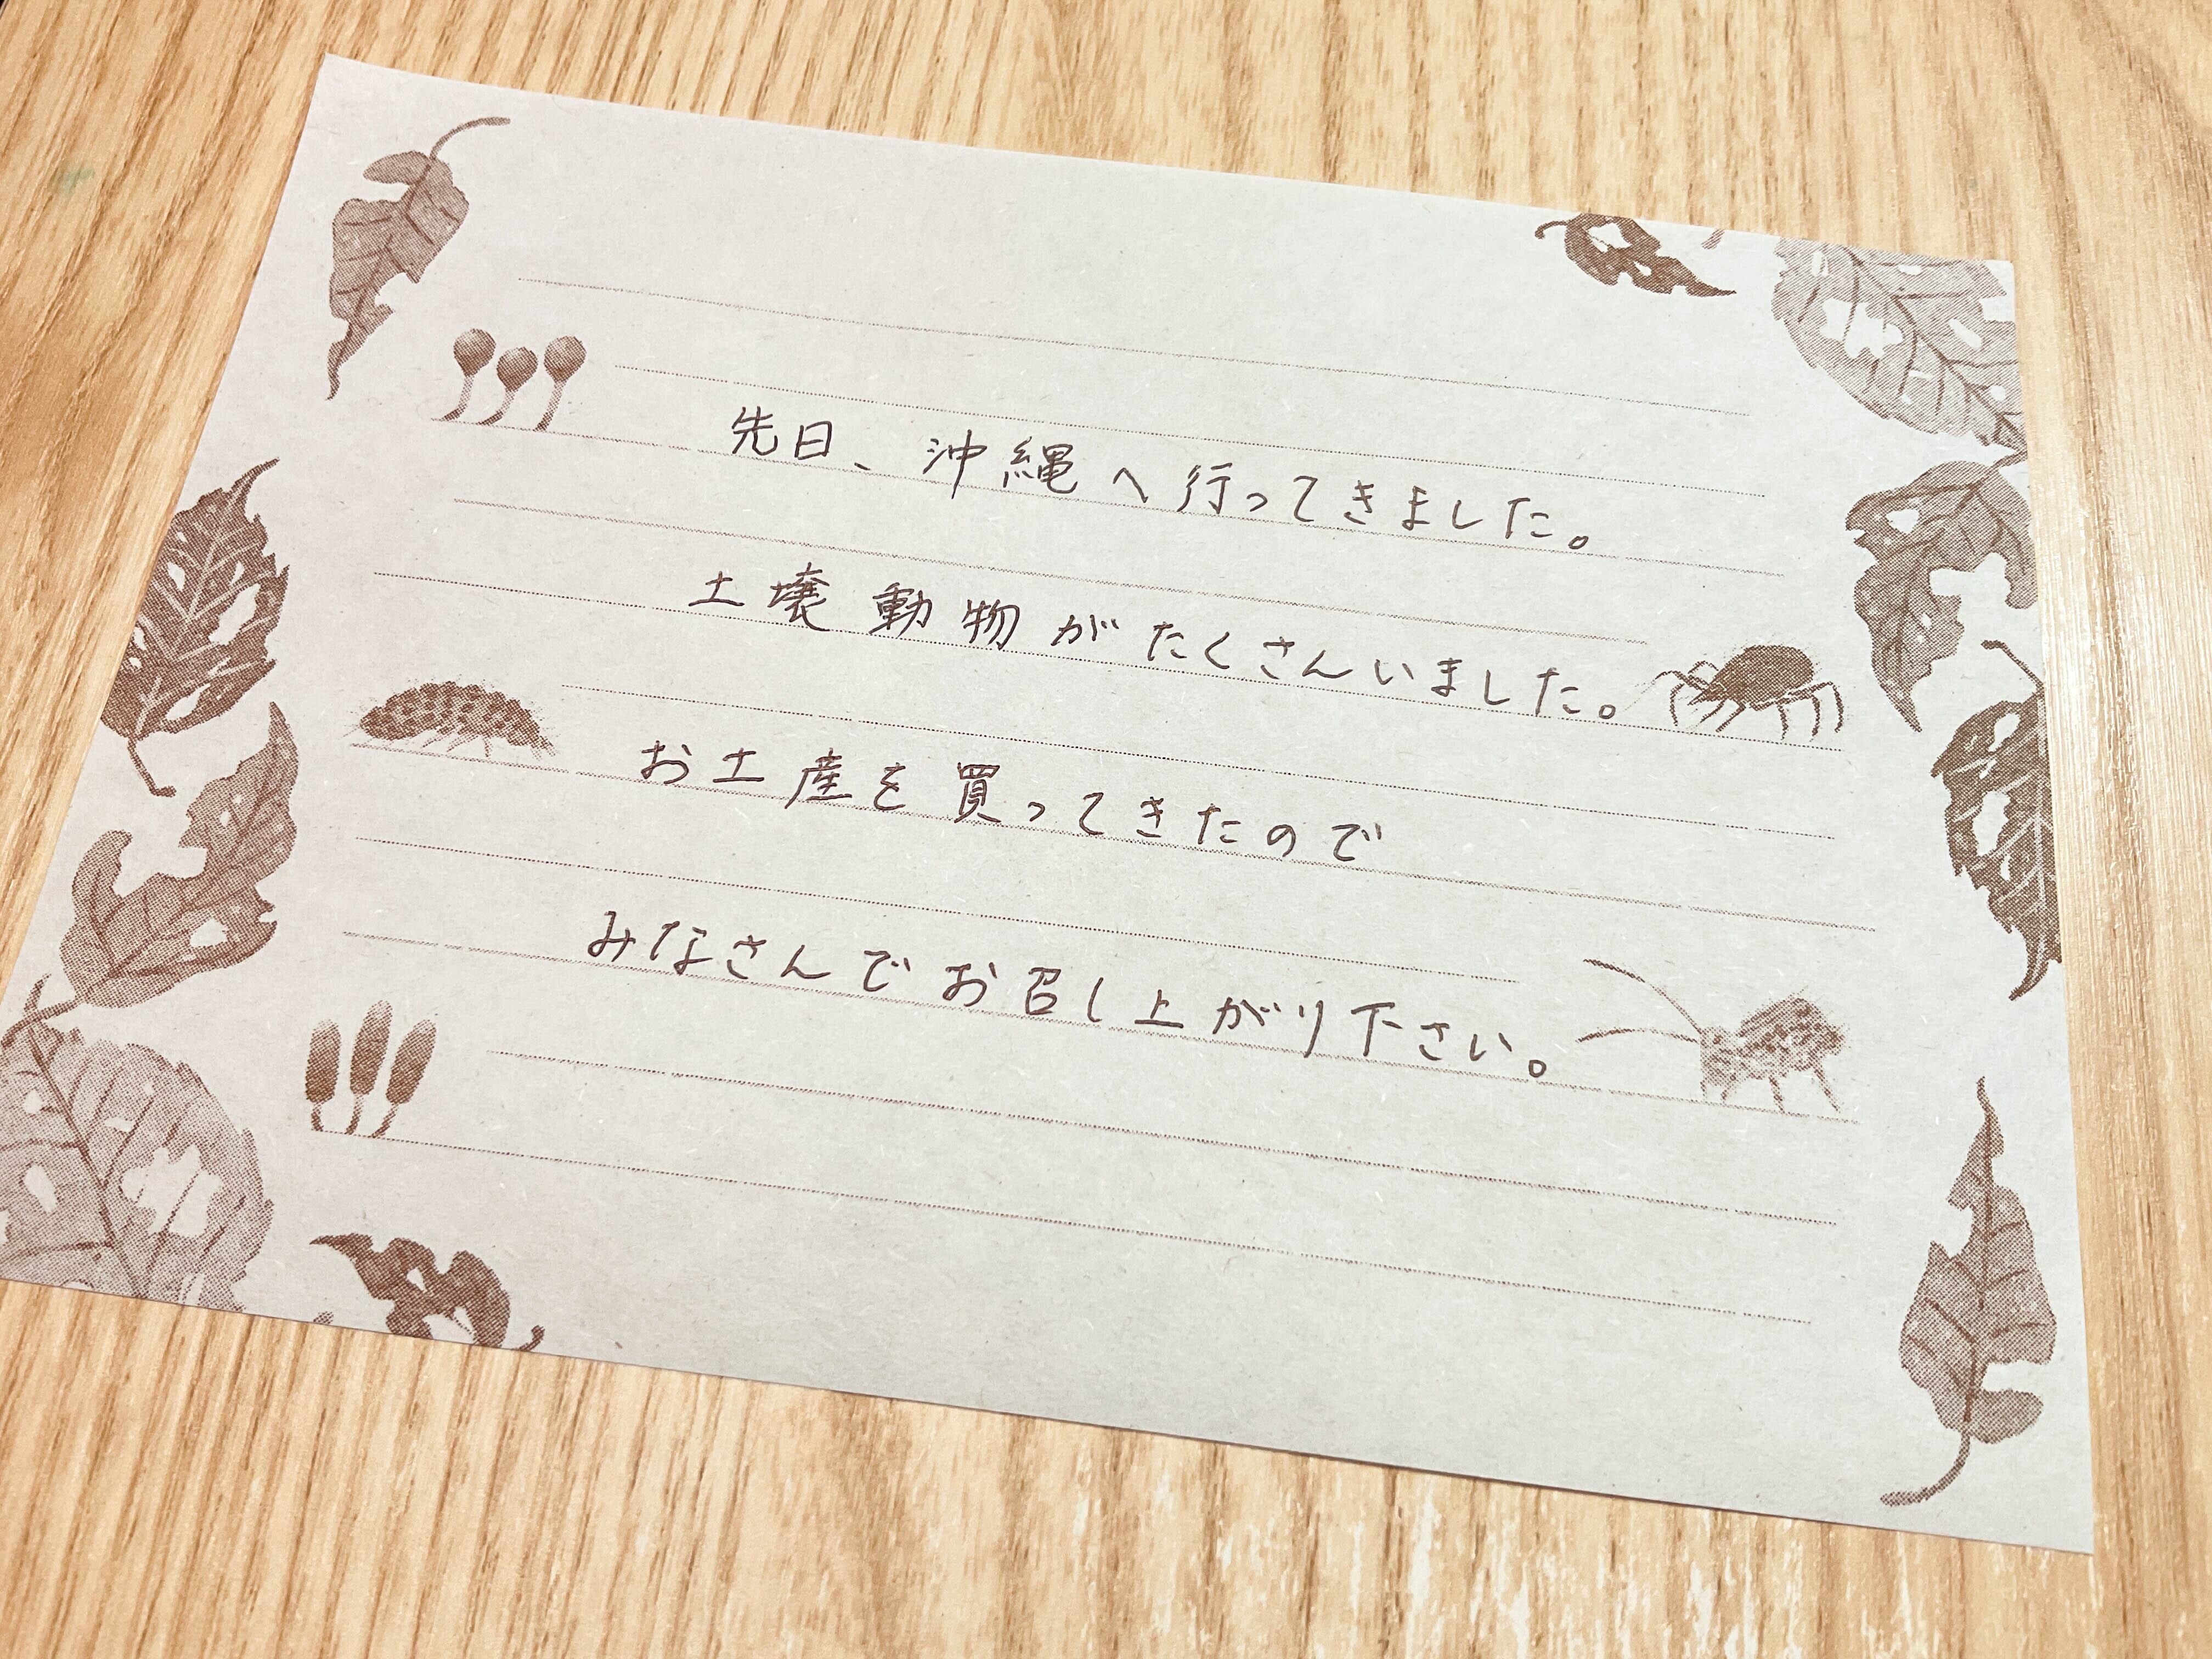 先日、沖縄へ行ってきました。
土壌動物がたくさんいました。
お土産を買ってきたので
みなさんでお召し上がり下さい。